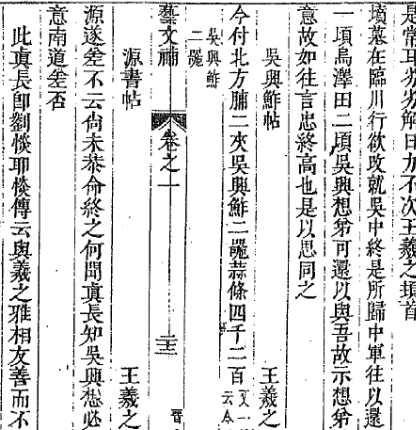 是常耳劣劣解日力不次王羲之頓首
墳墓在臨川行欲改就吳中終是所歸中軍往以還
一頃烏澤田二頃吳興想弟可還以與吾故示想弟
意故如往言忠終高也是以思同之
吳興鮓帖 王羲之
今付北方脯二夾吳興鮓二罌蒜條四千二百
又一
云
吳興鮓
二罌
藝文補 卷之一 晉
源書帖 王羲之
源遂差不云尚未恭命終之何問眞長知吳興想必
意南道差否
此眞長卽劉惔耶惔傳云與羲之雅相友善而不